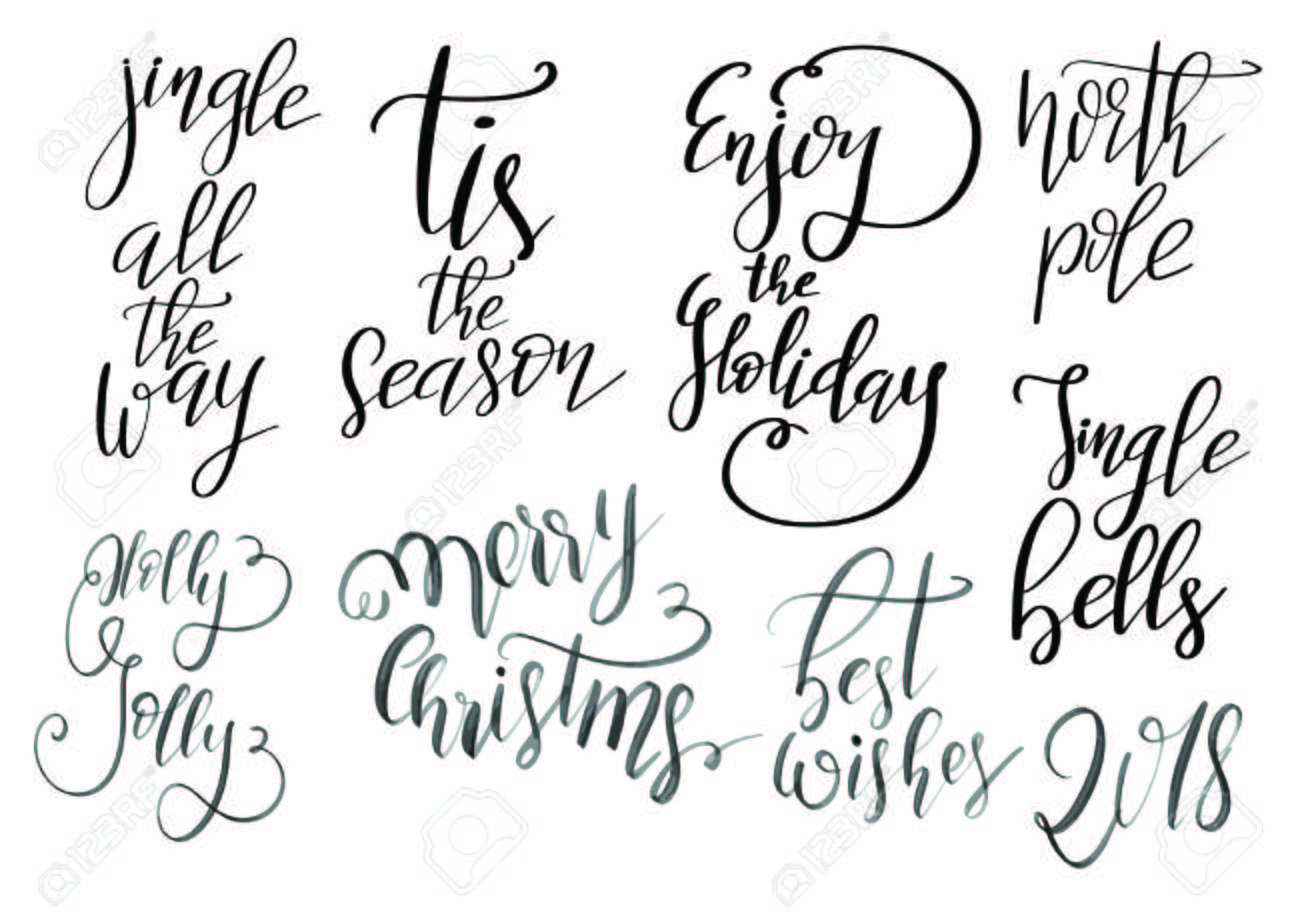 jingle
all
the
way
tis
the
season
Enjoy
the
Holiday
north
pole
Jingle
bells
Holly
Jolly
merry
Christms
best
wishes
2018
123RF